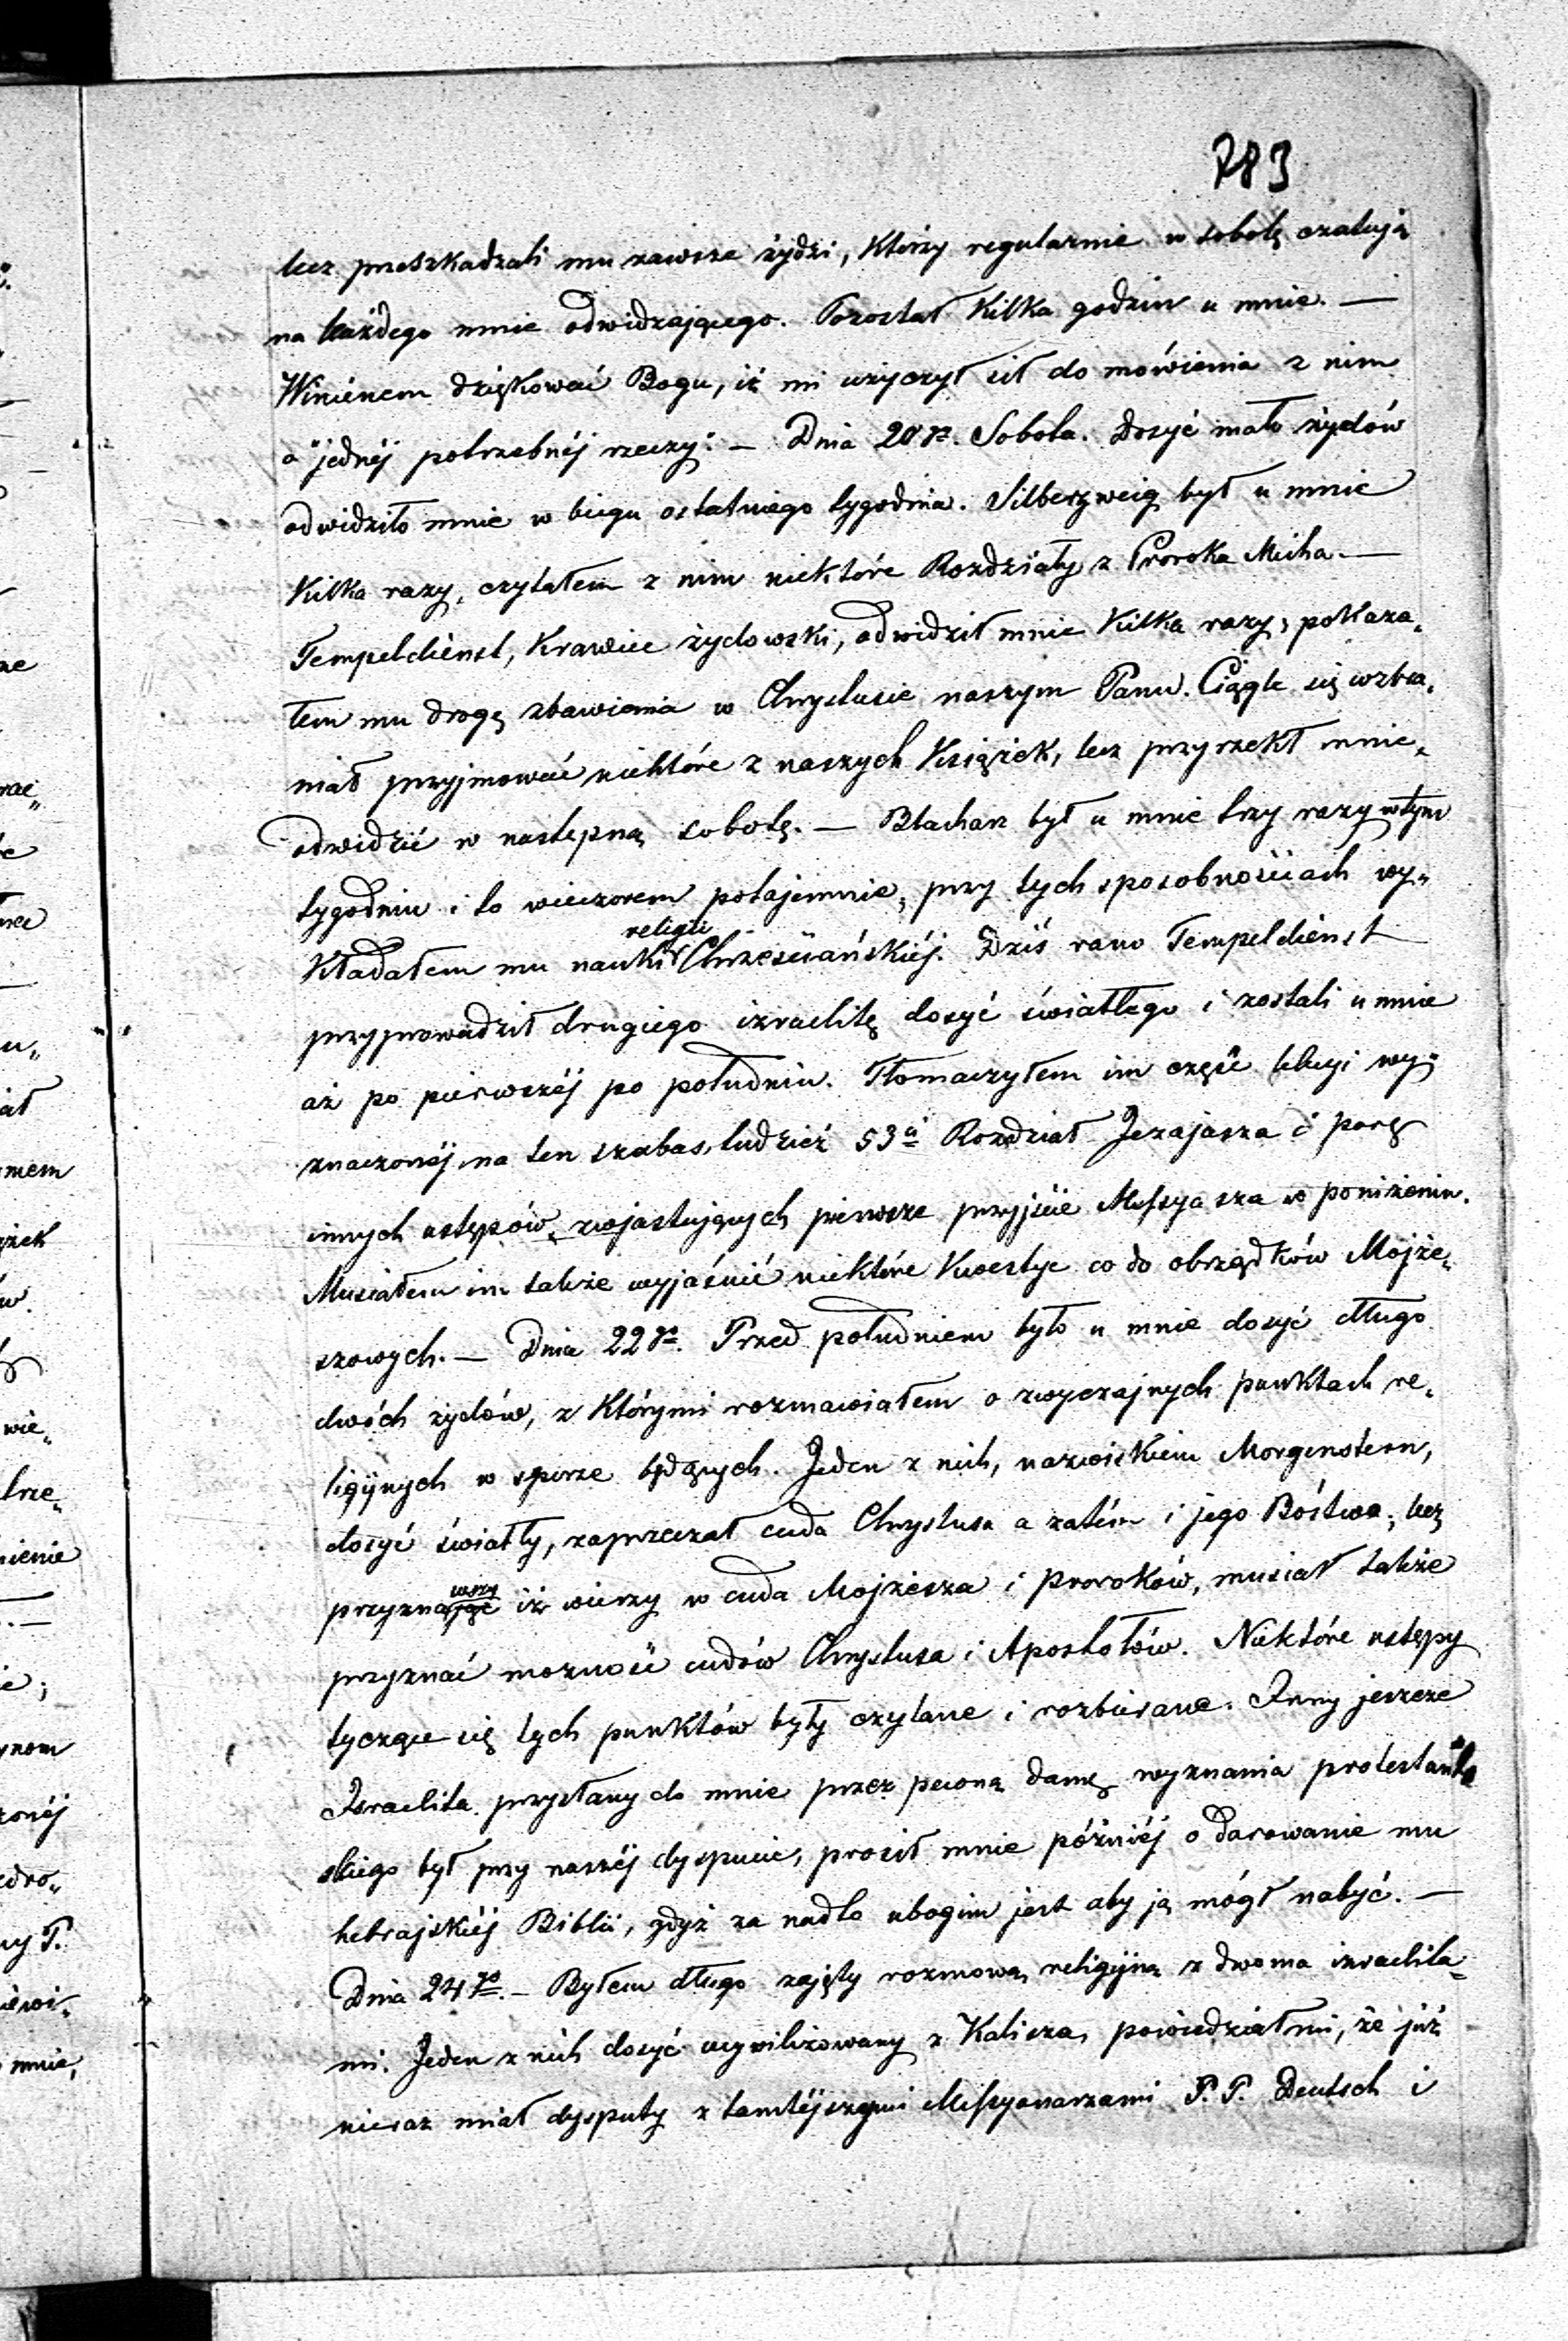 783
lecz przeszkadzali mu zawsze żydzi, którzy regularnie w sobotę czatują
na każdego mnie odwidzającego. Pozostał kilka godzin u mnie. —
Winienem dziękować Bogu, iż mi użyczył sił do mówienia z nim
o "jednéj potrzebnéj rzeczy". — Dnia 20go. Sobota. Dosyć mało żydów
odwidziło mnie w biegu ostatniego tygodnia. Silberzweig był u mnie
kilka razy, czytałem z nim niektóre Rozdziały z Proroka Micha. —
Tempeldienst, Krawiec żydowski, odwidził mnie kilka razy, pokaza„
łem mu drogę zbawienia w Chrystusie naszym Panu. Ciągle się wzbra„
niał przyjmować niektóre z naszych Książek, lecz przyrzekł mnie„
odwidzić w następną sobotę. — Blacharz był u mnie trzy razy w tym
tygodniu i to wieczorem potajemnie, przy tych sposobnościach wy„
kładałem mu nauki religii Chrześciańskiéj. Dziś rano Tempeldienst
przyprowadził drugiego izraelitę dosyć światłego i zostali u mnie
aż po pierwszéj po południu. Tłomaczyłem im część lekcyi wy„
znaczonéj na ten szabas, tudzież 53ci Rozdział Jezajasza i parę
innych ustępów, zwiastujących pierwsze przyjście Messyasza w poniżeniu.
Musiałem im także wyjaśnić niektóre kwestye co do obrządków Mojże„
szowych. — Dnia 22go. Przed południem było u mnie dosyć długo
dwóch żydów, z którymi rozmawiałem o zwyczajnych punktach re„
ligijnych w sporze będących. Jeden z nich, nazwiskiem Morgenstern,
dosyć światły, zaprzeczał cuda Chrystusa a zatém i jego Bóstwa; lecz
przyznawszy iż wierzy w cuda Mojżesza i proroków, musiał także
przyznać możność cudów Chrystusa i Apostołów. Niektóre ustępy
tyczące się tych punktów były czytane i rozbierane. Inny jeszcze
Izraelita przysłany do mnie przez pewną damę wyznania protestant„
skiego był przy naszéj dyspucie, prosił mnie późniéj o darowanie mu
hebrajskiéj Biblii, gdyż za nadto ubogim jest aby ją mógł nabyć. —
Dnia 24go. — Byłem długo zajęty rozmową religijną z dwoma izraelita„
mi. Jeden z nich dosyć cywilizowany z Kalisza, powiedział mi, że już
nieraz miał dysputy z tamtéjszymi Missyonarzami P. P. Deutsch i